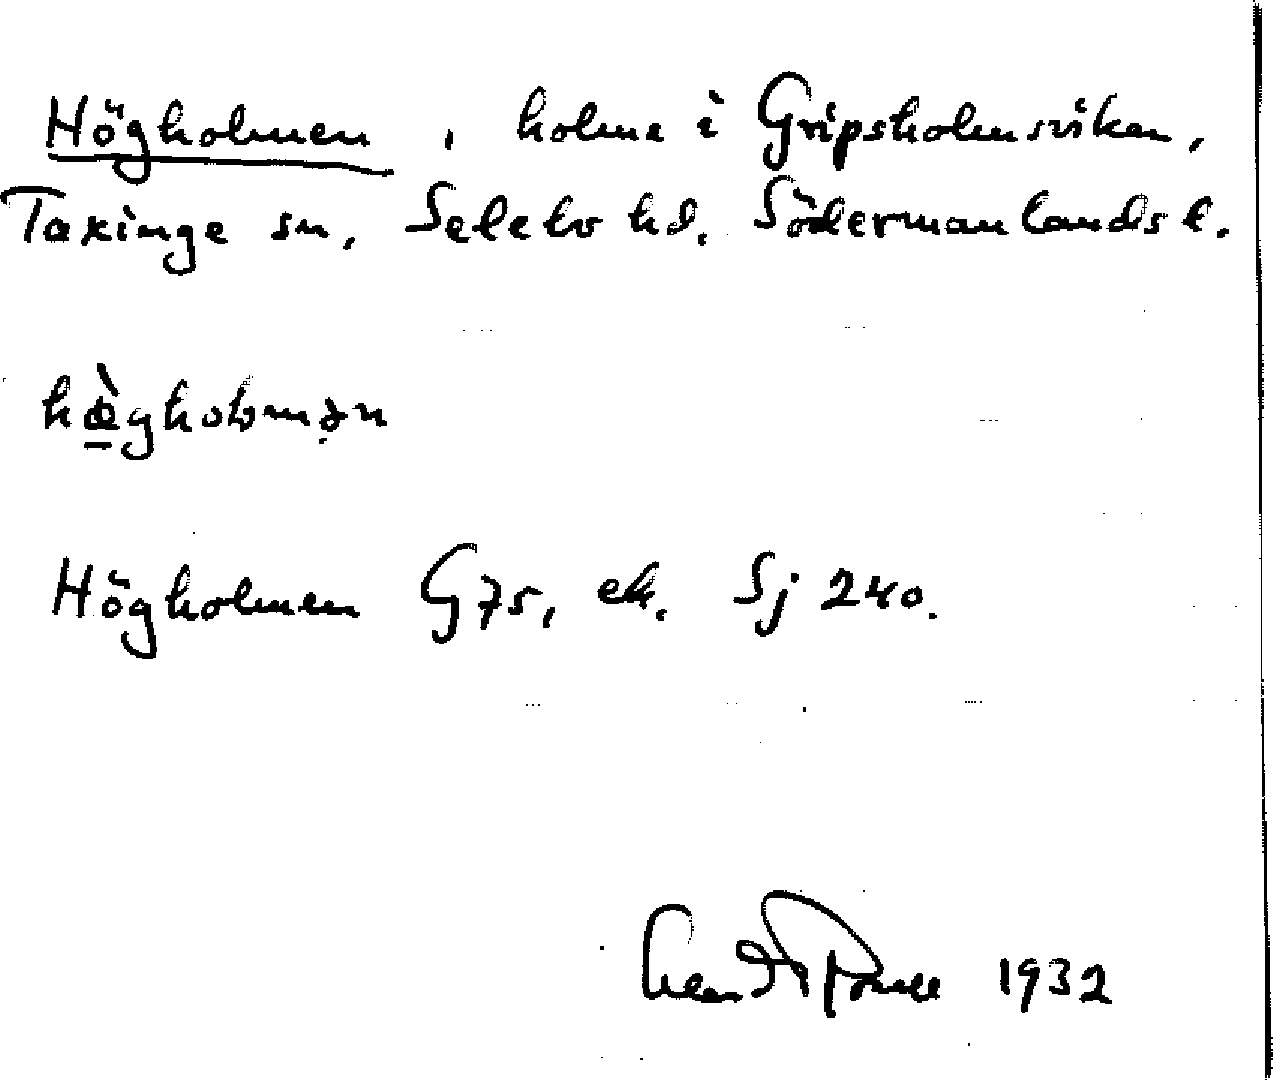 Högholmen, holme i Gripsholmsviken,
Taxinge sn, Selebo hd. Södermanlands l.
hœ̀gholmən
Högholmen G75, ek. Sj 240.
1932